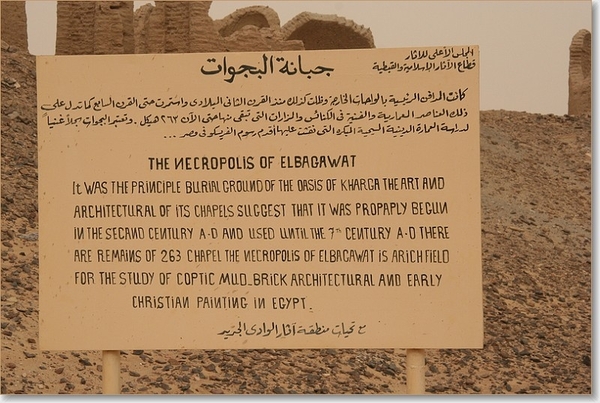 المجلس الأعلى للآثار
قطاع الآثار الإسلامية والقبطية
جبانة البجوات
كانت المدافن الرئيسية بالواحات الخارجة وظلت كذلك منذ القرن الثاني الميلادى واستمرت حتى القرن السابع كما تدل على
ذلك العناصر المعمارية والفنية فى الكنائس والمزارات التى تبقى منها حتى الآن ٢٦٣ هيكل . وتعتبر البجوات مجالا غنيا
لدراسة العمارة الدينية المسيحية المبكرة التى نقشت عليها أقدم رسوم الفريسكو فى مصر ...
THE NECROPOLIS OF ELBAGAWAT
IT WAS THE PRINCIPLE BURIAL GROUND OF THE OASIS OF KHARGA THE ART AND
ARCHITECTURAL OF ITS CHAPELS SUGGEST THAT IT WAS PROPAPLY BEGUN
IN THE SECAND CENTURY A.D AND USED UNTIL THE 7TH CENTURY A.D THERE
ARE REMAINS OF 263 CHAPEL THE NECROPOLIS OF ELBAGAWAT IS ARICH FIELD
FOR THE STUDY OF COPTIC MUD_BRICK ARCHITECTURAL AND EARLY
CHRISTIAN PAINTING IN EGYPT.
مع تحيات منطقة آثار الوادى الجديد